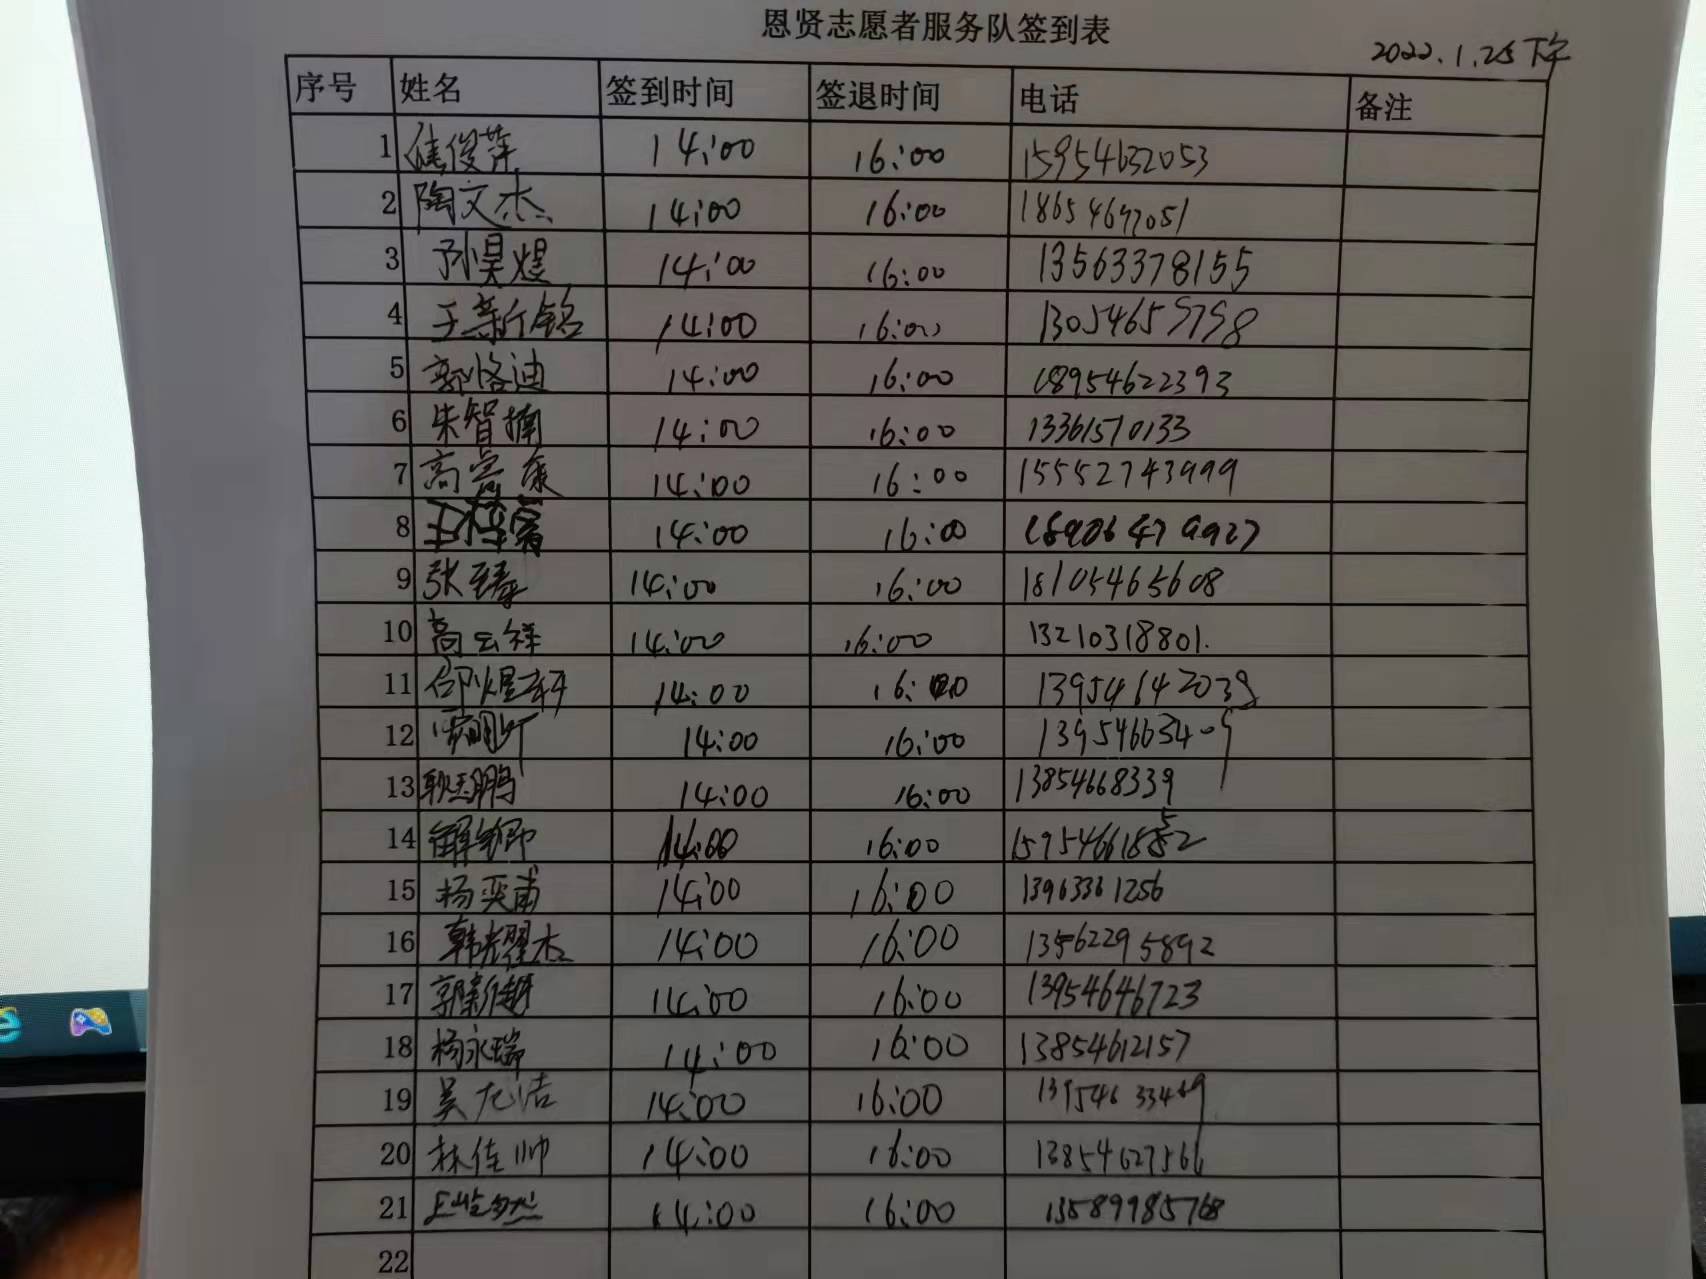 恩贤志愿者服务队签到表
2022.1.25 下午
序号 姓名 签到时间 签退时间 电话 备注
1 俊萍 14:00 16:00 15954632053
2 陶文杰 14:00 16:00 18654677051
3 孙昊煜 14:00 16:00 13563378155
4 王新铭 14:00 16:00 13054659798
5 郭恪迪 14:00 16:00 18954622393
6 朱智楠 14:00 16:00 13361570133
7 高常泰 14:00 16:00 15552743999
8 14:00 16:00
9 张臻 14:00 16:00 18105465608
10 高云祥 14:00 16:00 13210318801.
11 邵煜轩 14:00 16:00 13954642039
12 14:00 16:00 13954663409
13 耿玉鹏 14:00 16:00 13854668339
14 14:00 16:00
15 杨奕甫 14:00 16:00 13963361256
16 韩耀杰 14:00 16:00 13562295892
17 郭新越 14:00 16:00 13954646723
18 杨永瑞 14:00 16:00 13854612157
19 吴龙洁 14:00 16:00 13954633469
20 林佳帅 14:00 16:00 13854627566
21 14:00 16:00 13589985768
22